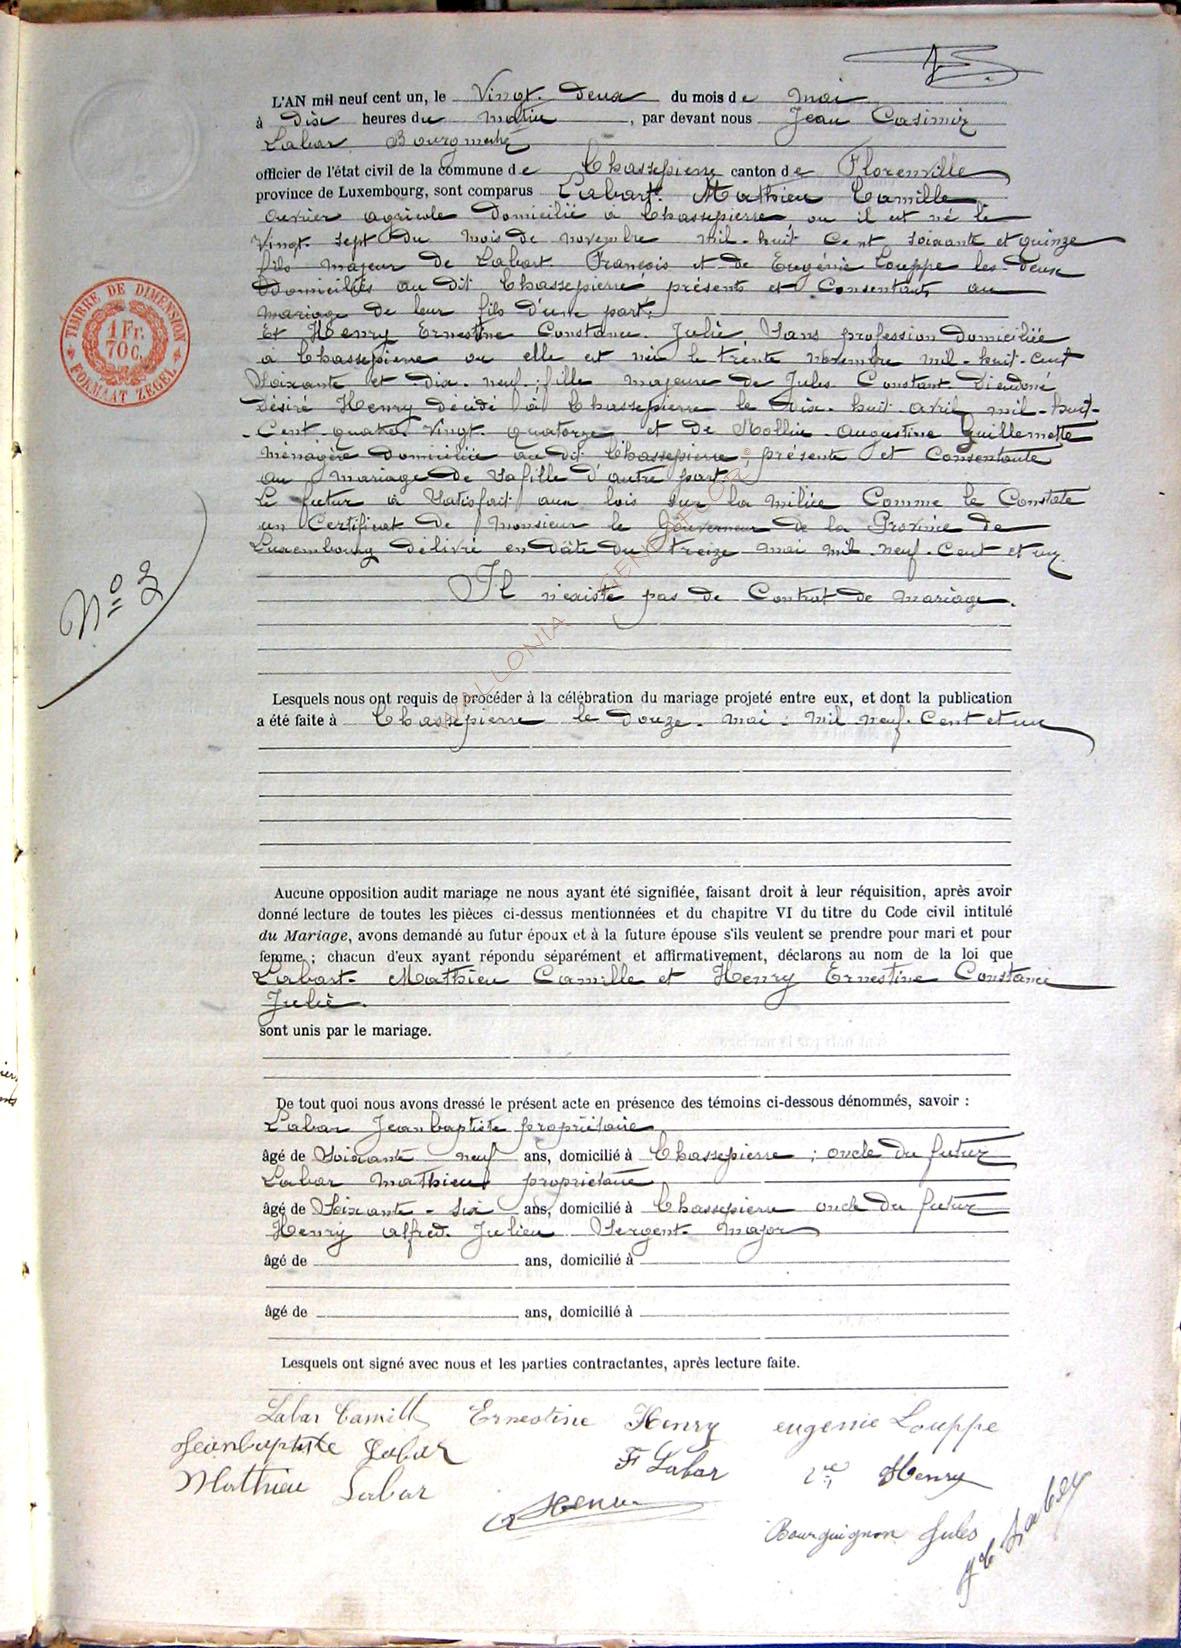 L'AN mil neuf cent un, le Vingt-deux du mois de mai
à dix heures du matin, par devant nous Jean Casimir
Labar Bourgmestre
officier de l'état civil de la commune de Chassepierre canton de Florenville
province de Luxembourg, sont comparus Labart Mathieu Camille
ouvrier agricole domicilié à Chassepierre ou il est né le
Vingt-sept du mois de novembre mil-huit cent soixante et quinze
fils majeur de Labart François et de Eugénie Louppe les deux
domiciliés au dit Chassepierre présents et Consentants au
mariage de leur fils d'une part;
Et Henry Ernestine Constance Julie Sans profession domiciliée
à Chassepierre ou elle est née le trente novembre mil-huit-cent
Soixante et dix-neuf; fille majeure de Jules Constant Dieudoné
Désiré Henry décédé à Chassepierre le dix-huit avril mil-huit-
Cent quatre Vingt-quatorze et de Rollin Augustine Guillemette
ménagère domiciliée au dit Chassepierre, présente et Consentante
au mariage de sa fille d'autre part.
Le futur à Satisfait aux lois sur la milice Comme le Constate
un Certificat de Monsieur le Gouverneur de la Province de
Luxembourg délivré en date du treize mai mil-neuf-Cent et un
Il n'existe pas de Contrat de mariage.
TIMBRE DE DIMENSION
1 Fr.
70 C.
FORMAAT ZEGEL
N° 3
WALLONIA
Lesquels nous ont requis de procéder à la célébration du mariage projeté entre eux, et dont la publication
a été faite à Chassepierre le douze mai mil neuf Cent et un
Aucune opposition audit mariage ne nous ayant été signifiée, faisant droit à leur réquisition, après avoir
donné lecture de toutes les pièces ci-dessus mentionnées et du chapitre VI du titre du Code civil intitulé
du Mariage, avons demandé au futur époux et à la future épouse s'ils veulent se prendre pour mari et pour
femme; chacun d'eux ayant répondu séparément et affirmativement, déclarons au nom de la loi que
Labart Mathieu Camille et Henry Ernestine Constance
Julie.
sont unis par le mariage.
De tout quoi nous avons dressé le présent acte en présence des témoins ci-dessous dénommés, savoir :
Labar Jeanbaptiste propriétaire
âgé de Soixante neuf ans, domicilié à Chassepierre; oncle du futur
Labar Mathieu propriétaire
âgé de Soixante-six ans, domicilié à Chassepierre oncle du futur
Henry alfred Julien Sergent-Major
âgé de ans, domicilié à
âgé de ans, domicilié à
Lesquels ont signé avec nous et les parties contractantes, après lecture faite.
Labar Camille Ernestine Henry eugenie Louppe
Jeanbaptiste Labar F Labar Vve Henry
Mathieu Labar Henry
Bourguignon Jules